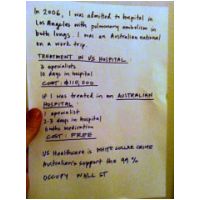 In 2006, I was admitted to hospital in
Los Angeles with pulmonary embolism in
both lungs. I was an Australian national
on a work trip.
TREATMENT IN US HOSPITAL:
3 specialists
10 days in hospital
COST: $110,000
If I was treated in an AUSTRALIAN
HOSPITAL:
1 specialist
2-3 days in hospital
6 mths medication
COST: FREE
US Healthcare is WHITE COLLAR CRIME
Australian's support the 99%
OCCUPY WALL ST